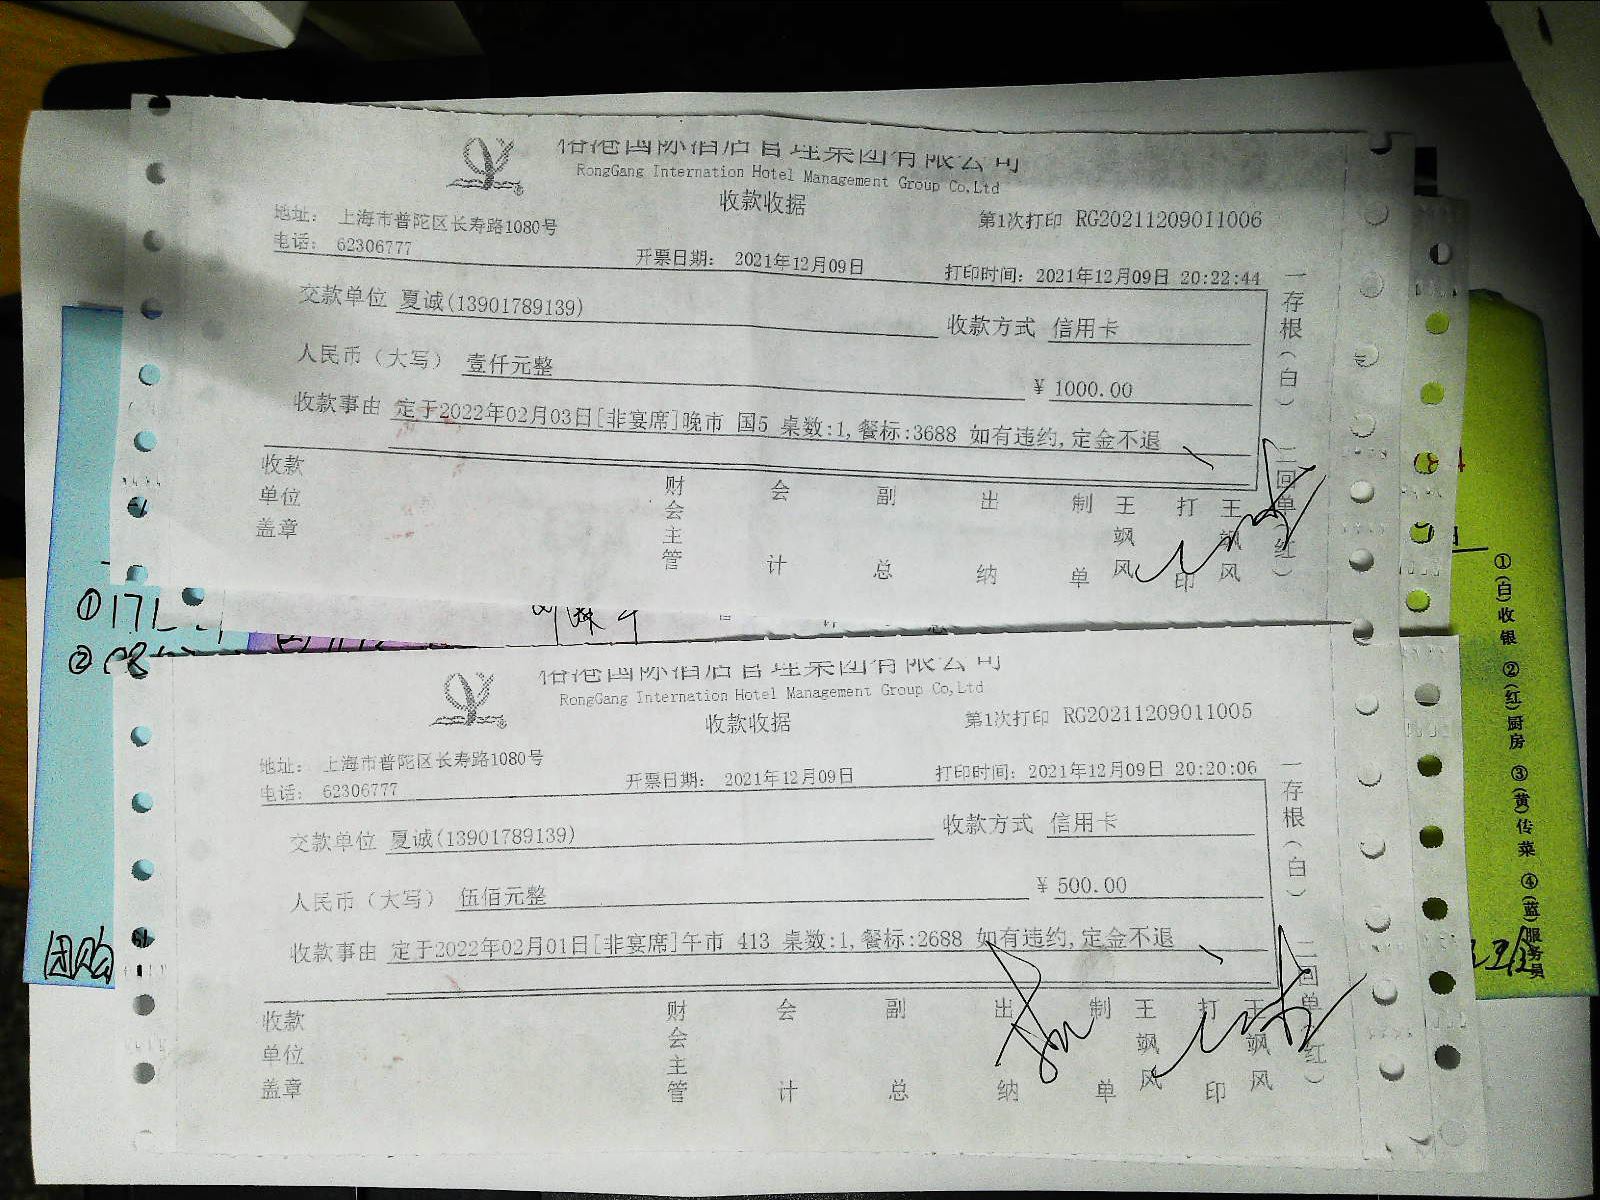 裕港国际酒店管理集团有限公司
RongGang Internation Hotel Management Group Co,Ltd
收款收据
地址: 上海市普陀区长寿路1080号
第1次打印 RG20211209011006
电话: 62306777
开票日期: 2021年12月09日
打印时间: 2021年12月09日 20:22:44
交款单位 夏诚(13901789139)
收款方式 信用卡
人民币（大写） 壹仟元整
¥ 1000.00
收款事由 定于2022年02月03日[非宴席]晚市 国5 桌数:1,餐标:3688 如有违约,定金不退
一存根(白) 二回单(红)
收款单位盖章
财会主管 会计 副总 出纳 制单 王飒风 打印 王飒风
裕港国际酒店管理集团有限公司
RongGang Internation Hotel Management Group Co,Ltd
收款收据
第1次打印 RG20211209011005
地址: 上海市普陀区长寿路1080号
电话: 62306777
开票日期: 2021年12月09日
打印时间: 2021年12月09日 20:20:06
交款单位 夏诚(13901789139)
收款方式 信用卡
人民币（大写） 伍佰元整
¥ 500.00
收款事由 定于2022年02月01日[非宴席]午市 413 桌数:1,餐标:2688 如有违约,定金不退
一存根(白) 二回单(红)
收款单位盖章
财会主管 会计 副总 出纳 制单 王飒风 打印 王飒风
①(白)收银 ②(红)厨房 ③(黄)传菜 ④(蓝)服务员
团购